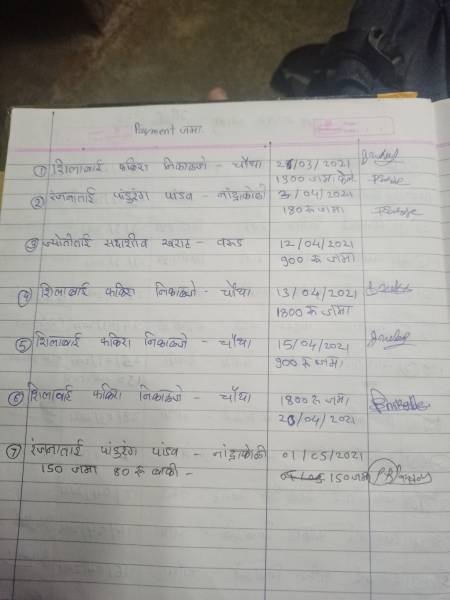 Payment जमा
① शिलाबाई फकिरा निकाळजे - चौथा 25/03/2021
1300 जमा केले
② रंजनाताई पांडुरंग पांडव - नांद्राकोळी 3/04/2021
180 रु जमा
③ ज्योतीताई सदाशीव खरात - वरुड 12/04/2021
900 रु जमा
④ शिलाबाई फकिरा निकाळजे - चौथा 13/04/2021
1800 रु जमा
⑤ शिलाबाई फकिरा निकाळजे - चौथा 15/04/2021
900 रु जमा
⑥ शिलाबाई फकिरा निकाळजे - चौथा 1800 रु जमा
20/04/2021
⑦ रंजनाताई पांडुरंग पांडव - नांद्राकोळी 01/05/2021
150 जमा 80 रु बाकी - 150 जमा